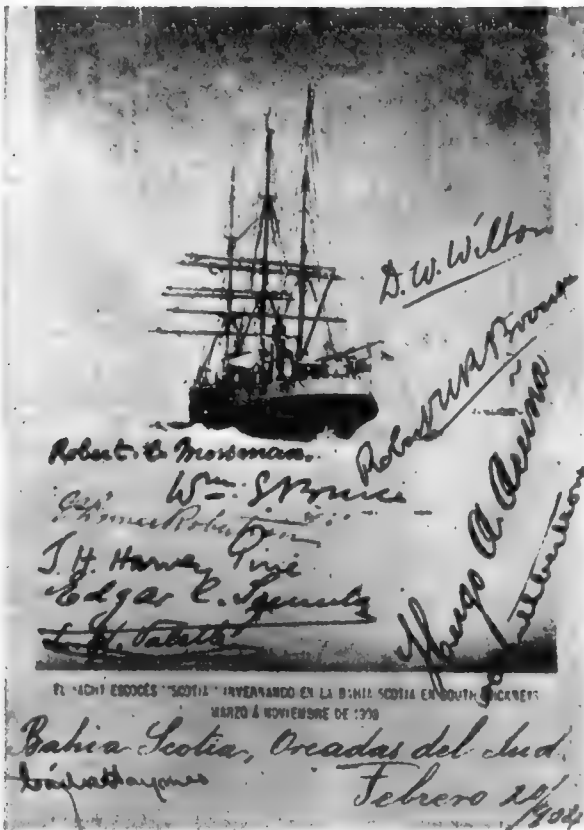 D. W. Wilton
Robert
Hugo A. Acuña
Robert C. Mossman.
Wm. S. Bruce
Thomas Robertson
J. H. Harvey Pirie
Edgar C. Szmula
EL YACHT ESCOCÉS "SCOTIA" INVERNANDO EN LA BAHIA SCOTIA EN SOUTH ORCKNEYS
MARZO Á NOVIEMBRE DE
Bahia Scotia, Orcadas del Sud.
Febrero